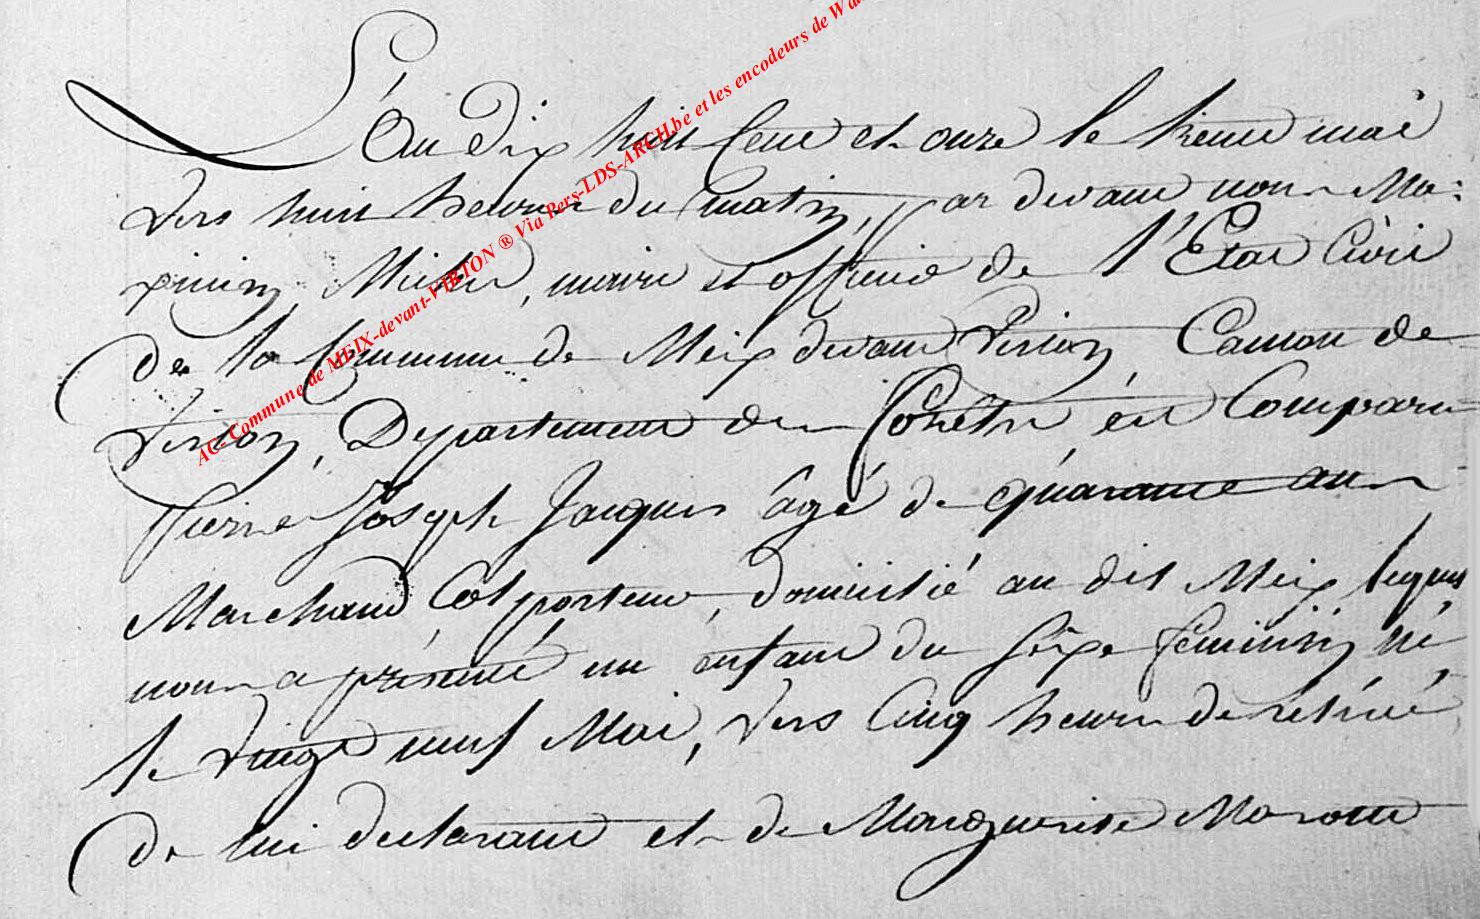 L'An dix huit Cent et onze le trente mai
vers huit heures du matin, par devant nous Ma:
ximin Michel, maire et officier de l'Etat Civil
de la Commune de Meix devant Virton, Canton de
Virton, Departement des forêts est Comparu
Pierre Joseph Jacques âgé de quarante ans
Marchand Colporteur, domicilié au dit Meix lequel
nous a présenté un enfant du sexe féminin né
le vingt neuf Mai, vers Cinq heures de relévé
de lui declarant et de Marguerite Marotte
AC- Commune de MEIX-devant-VIRTON ® Via Pers-LDS-ARCH.be et les encodeurs de Wa